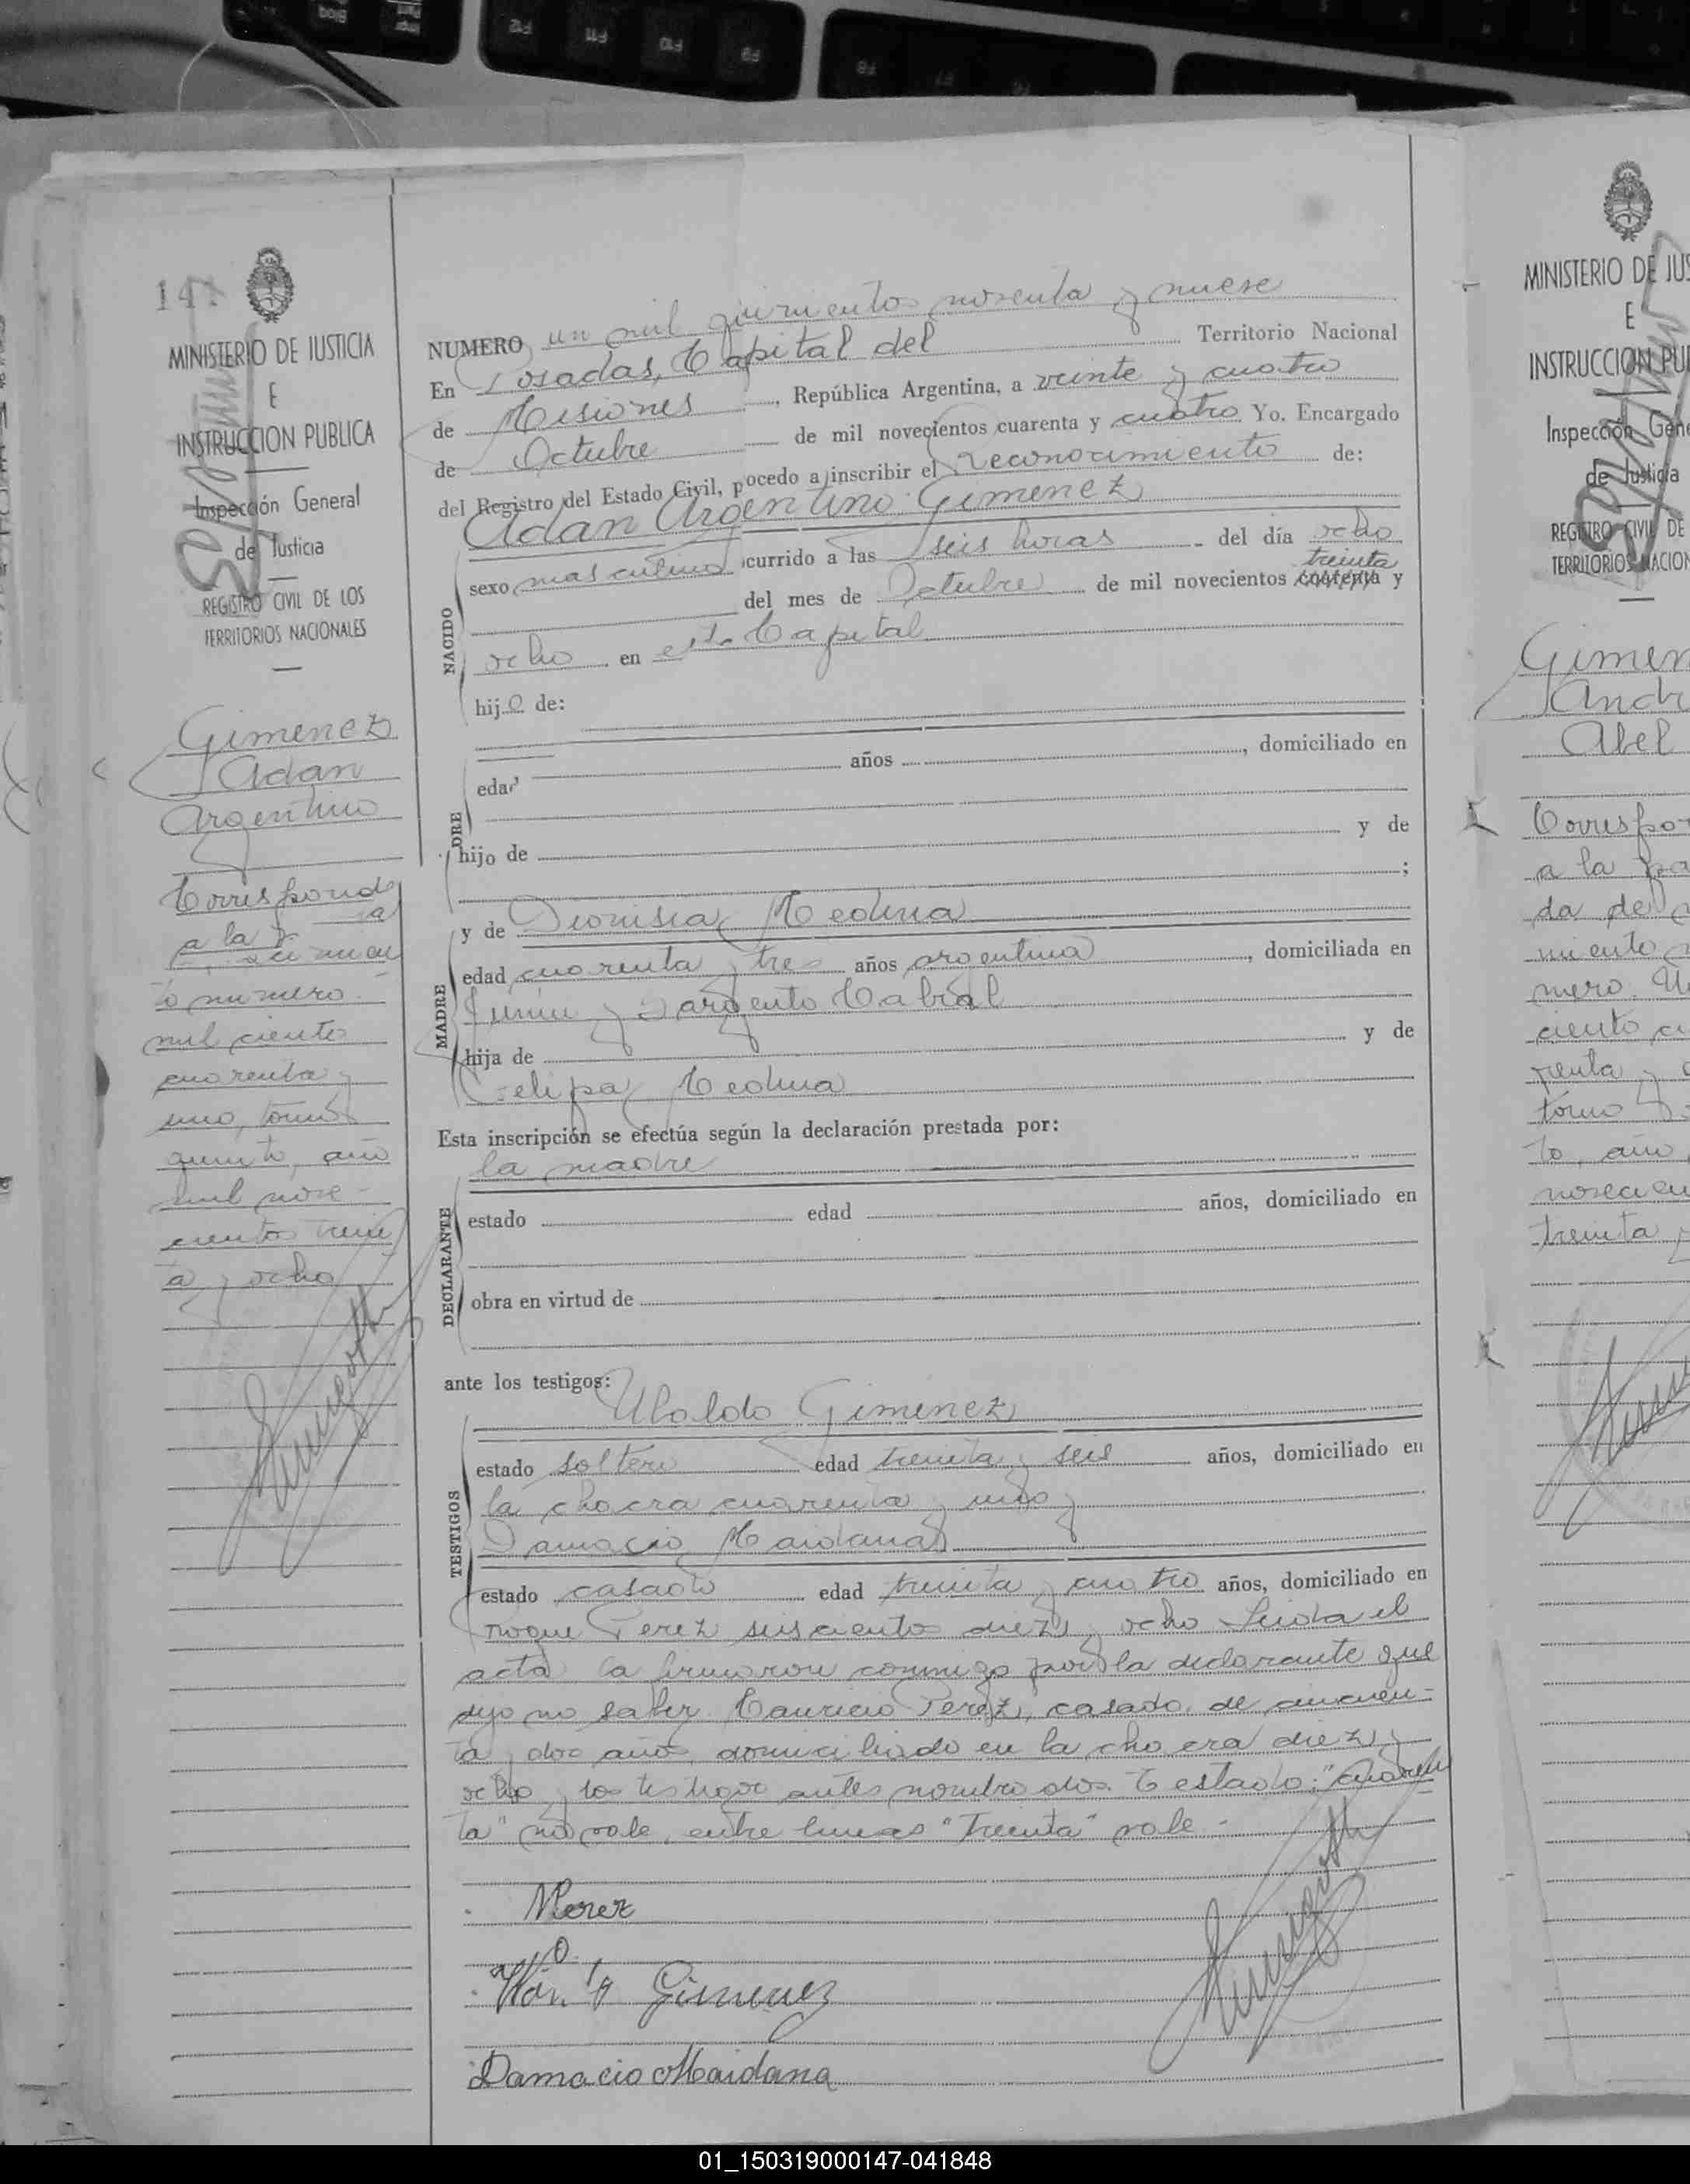 147
MINISTERIO DE JUSTICIA
E
INSTRUCCION PUBLICA
Inspección General
de Justicia
REGISTRO CIVIL DE LOS
TERRITORIOS NACIONALES
Gimenez
Adan
Argentino
Corresponde
a la
to numero
mil ciento
cuarenta y
uno, tomo
quinto, año
mil nove-
cientos trein
ta y ocho
NUMERO un mil quinientos noventa y nueve
En Posadas, Capital del Territorio Nacional
de Misiones, República Argentina, a veinte y cuatro
de Octubre de mil novecientos cuarenta y cuatro Yo, Encargado
del Registro del Estado Civil, pocedo a inscribir el Reconocimiento de:
Adan Argentino Gimenez
NACIDO
sexo masculino ocurrido a las seis horas del día ocho
treinta
del mes de Octubre de mil novecientos cuarenta y
ocho en esta Capital
hijo de:
edad años, domiciliado en
PADRE
hijo de y de
;
y de Dionisia Medina
MADRE
edad cuarenta y tres años argentina, domiciliada en
Junin y Sargento Cabral
hija de y de
Felipa Medina
Esta inscripción se efectúa según la declaración prestada por:
la madre
DECLARANTE
estado edad años, domiciliado en
obra en virtud de
ante los testigos:
Ubaldo Gimenez
TESTIGOS
estado soltero edad treinta y seis años, domiciliado en
la chacra cuarenta y uno y
Damacio Maidana
estado casado edad treinta y cuatro años, domiciliado en
Roque Perez seiscientos diez y ocho Leida el
acta la firmaron conmigo por la declarante que
dijo no saber Mauricio Perez, casado, de cincuen-
ta y dos años, domiciliado en la chacra diez y
ocho y los testigos antes nombrados. Testado: "cuaren
ta" no vale, entre lineas "treinta" vale -
MPerez
Gimenez
Damacio Maidana
MINISTERIO DE JUS
E
INSTRUCCION PU
Inspección Gene
de Justicia
REGISTRO CIVIL DE
TERRITORIOS NACION
Gimen
Andr
Abel
Correspo
a la pa
da de
miento
mero. Un
ciento cu
renta y
tomo
to, año
novecien
treinta y
01_150319000147-041848